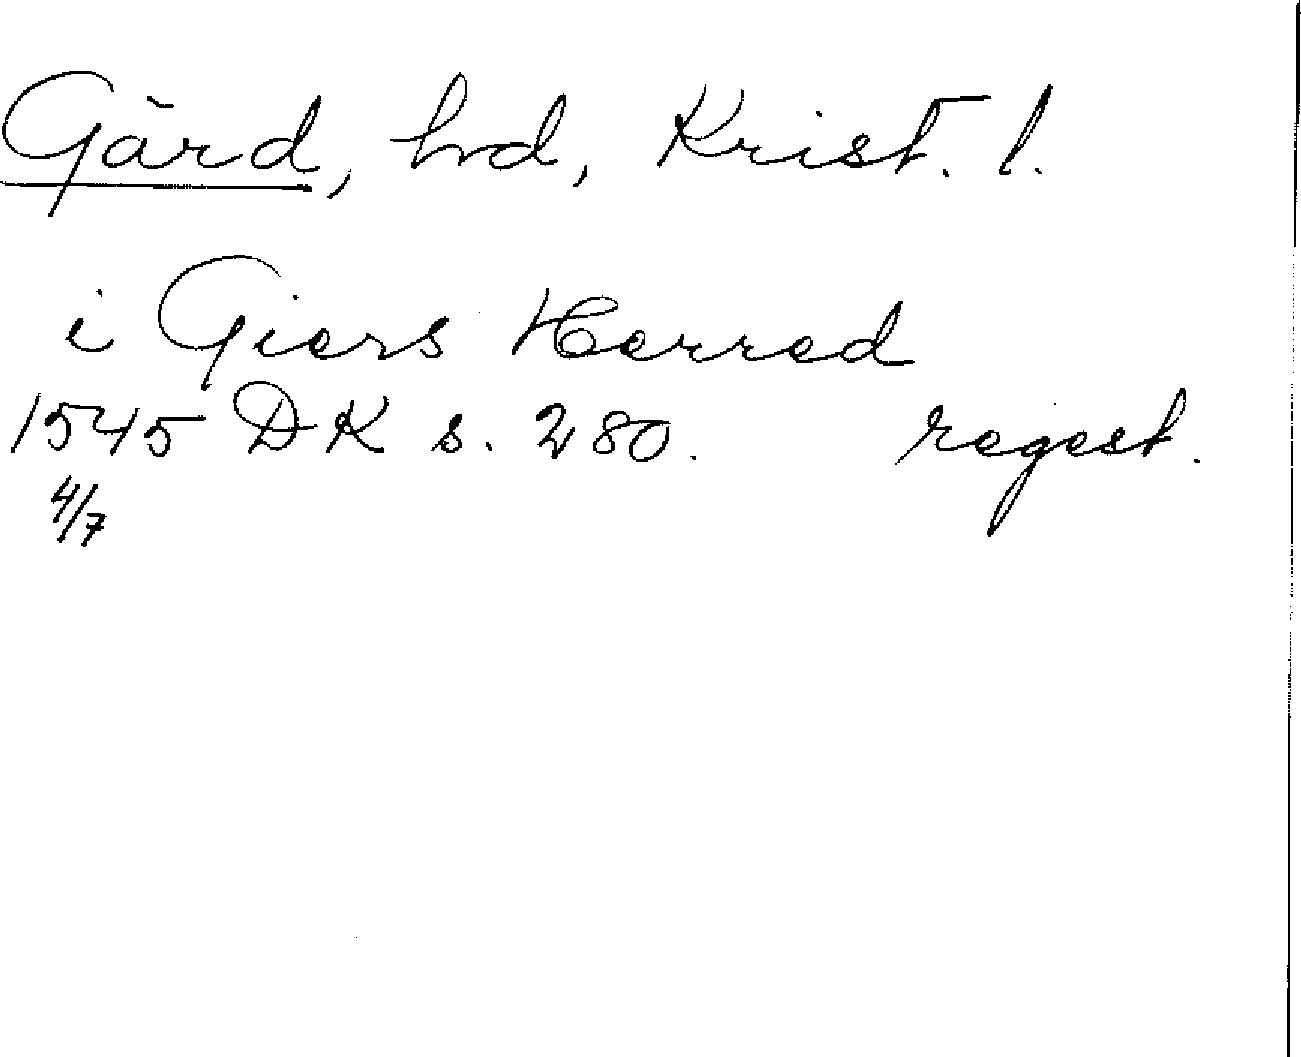 Gärd, hd, Krist. l.
i Giers Herred
1545 DK s. 280. regest.
4/7